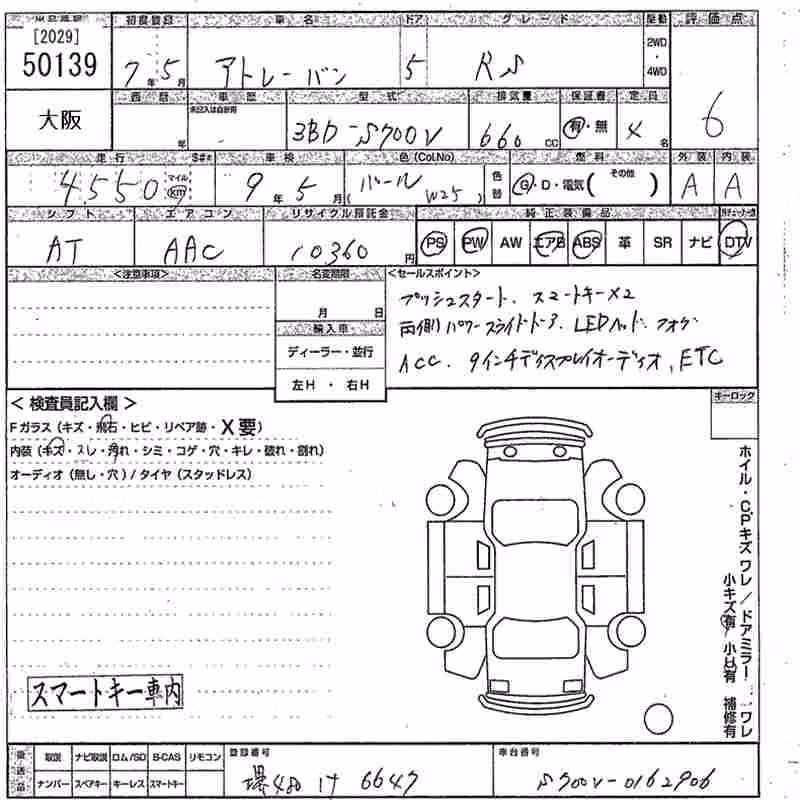 [2029]
50139
初度登録 車名 ドア グレード 駆動 評価点
7年5月 アトレーバン 5 RS 2WD・4WD 6
大阪
車歴 型式 排気量 保証書 定員
年 3BD-S700V 660cc 有・無 4名
走行 S#* 車検 色(Col.No) 色替 燃料 外装 内装
4550 マイル km 9年5月 パール(W25) G・D・電気( その他 ) A A
シフト エアコン リサイクル預託金 純正装備品
AT AAC 10360円 PS PW AW エアB ABS 革 SR ナビ DTV
<注意事項> 名変期限 <セールスポイント>
月 日
プッシュスタート、スマートキー×2
両側パワースライドドア、LEDヘッド、フォグ
ACC、9インチディスプレイオーディオ、ETC
輸入車
ディーラー・並行
左H・右H
<検査員記入欄>
Fガラス(キズ・飛石・ヒビ・リペア跡・X要)
内装(キズ・スレ・汚れ・シミ・コゲ・穴・キレ・破れ・割れ)
オーディオ(無し・穴)/タイヤ(スタッドレス)
キーロック
ホイル・CPキズ ワレ/ドアミラー ワレ
小キズ有 小凹有 補修有
スマートキー車内
後送品 取説 ナビ取説 ロム/SD B-CAS リモコン
ナンバー スペアキー キーレス スマートキー
登録番号 車台番号
堺480 け 6647 S700V-0162906